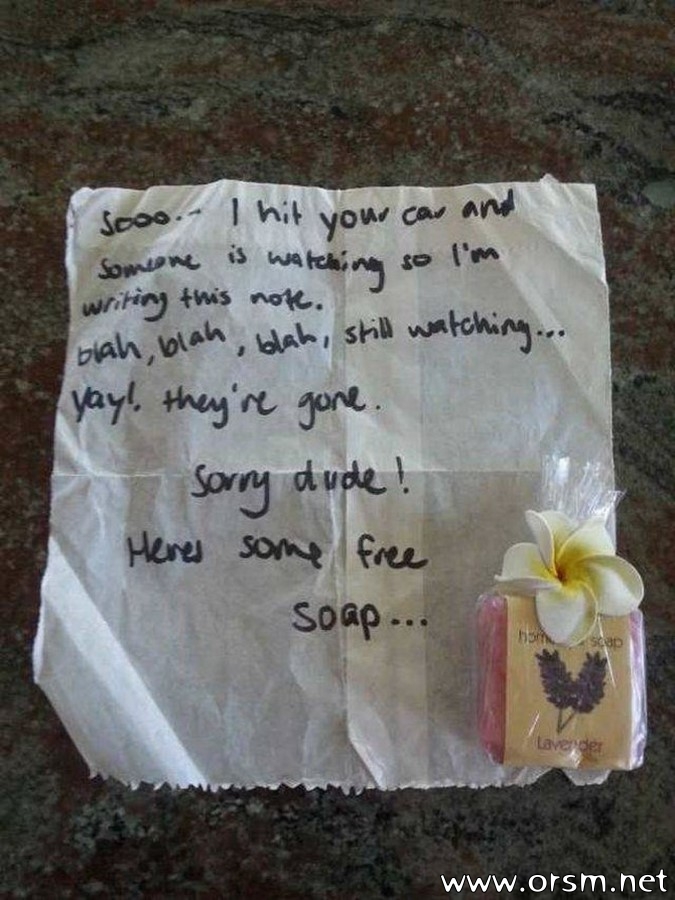 Sooo.. I hit your car and
someone is watching so I'm
writing this note.
blah, blah, blah, still watching...
Yay!. they're gone.
Sorry dude!
Heres some free
soap...
soap
Lavender
www.orsm.net